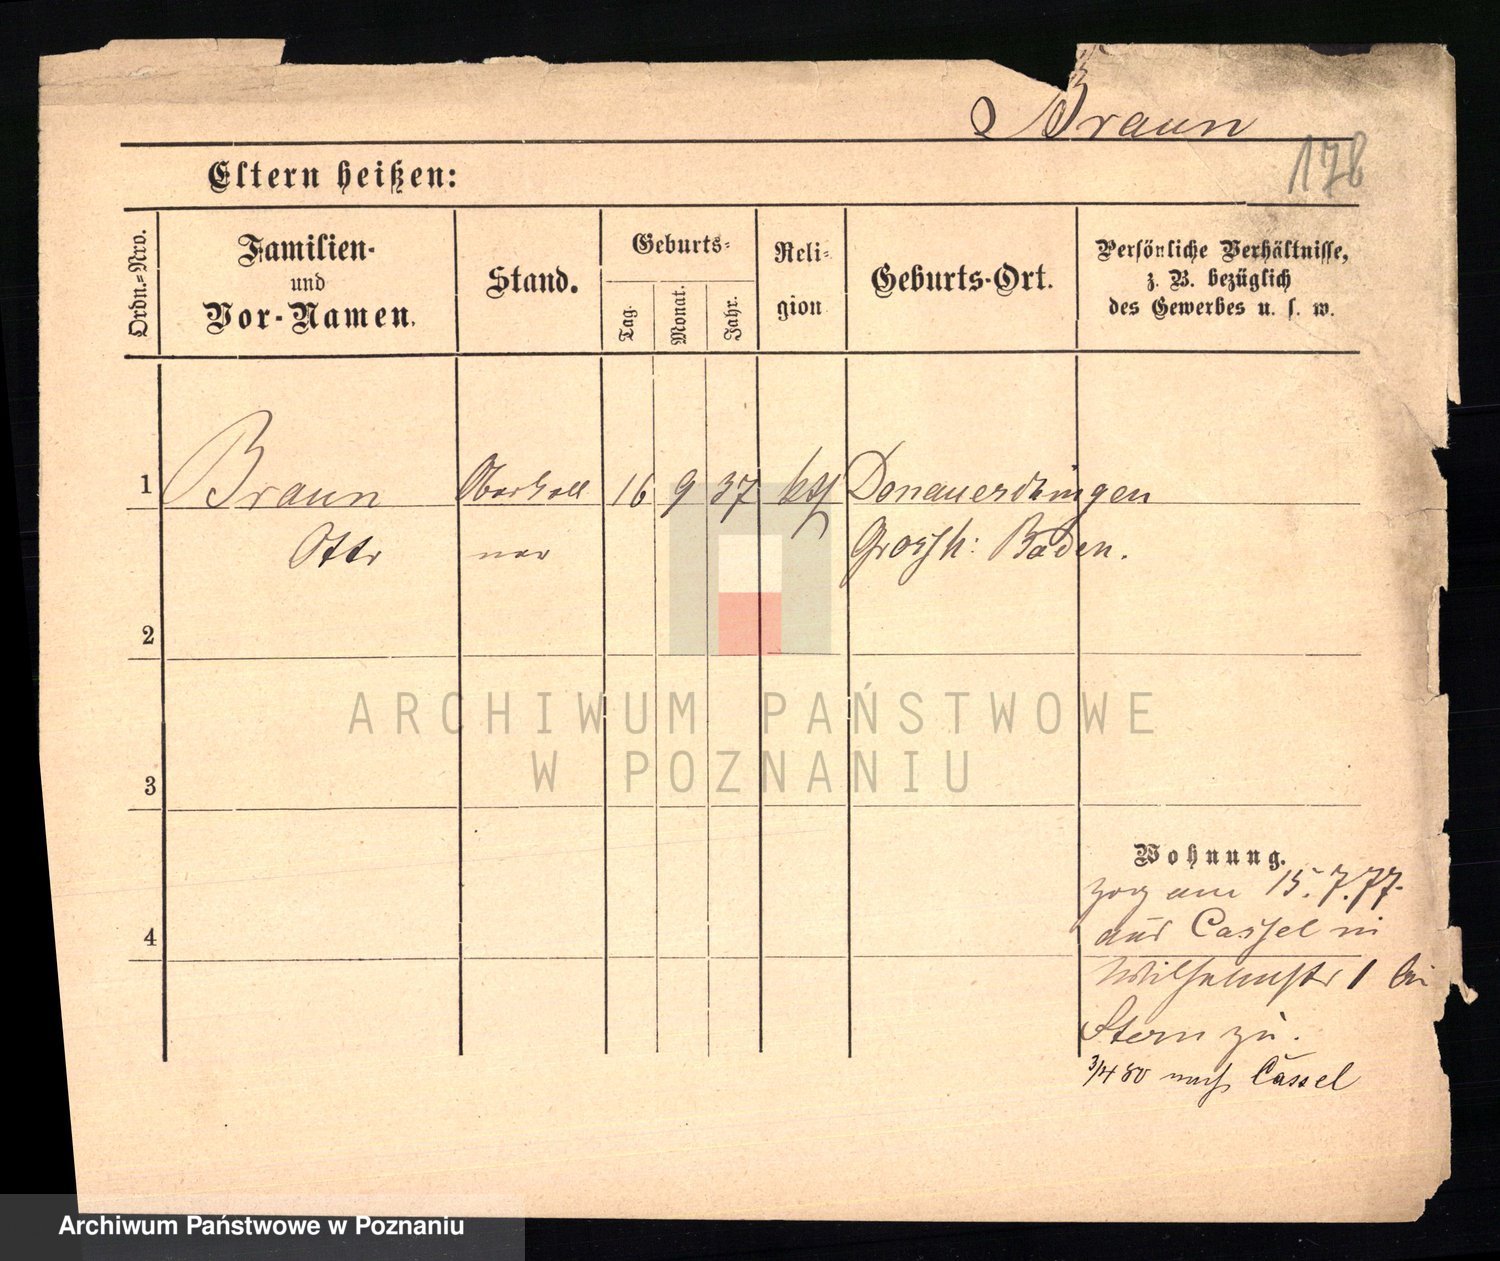 Braun
178
Eltern heißen:
Ordn.-Nro.
Familien-
und
Vor-Namen.
Stand.
Geburts-
Tag.
Monat.
Jahr.
Reli-
gion
Geburts-Ort.
Persönliche Verhältnisse,
z. B. bezüglich
des Gewerbes u. s. w.
1 Braun Oberkell 16 9 37 kth Donauerchingen
Otto ner Grossh: Baden.
2
3
4
Wohnung.
zog am 15.7.77.
aus Cassel in
Wilhelmstr 1 bei
Stern zu.
3/4 80 nach Cassel
ARCHIWUM PAŃSTWOWE
W POZNANIU
Archiwum Państwowe w Poznaniu